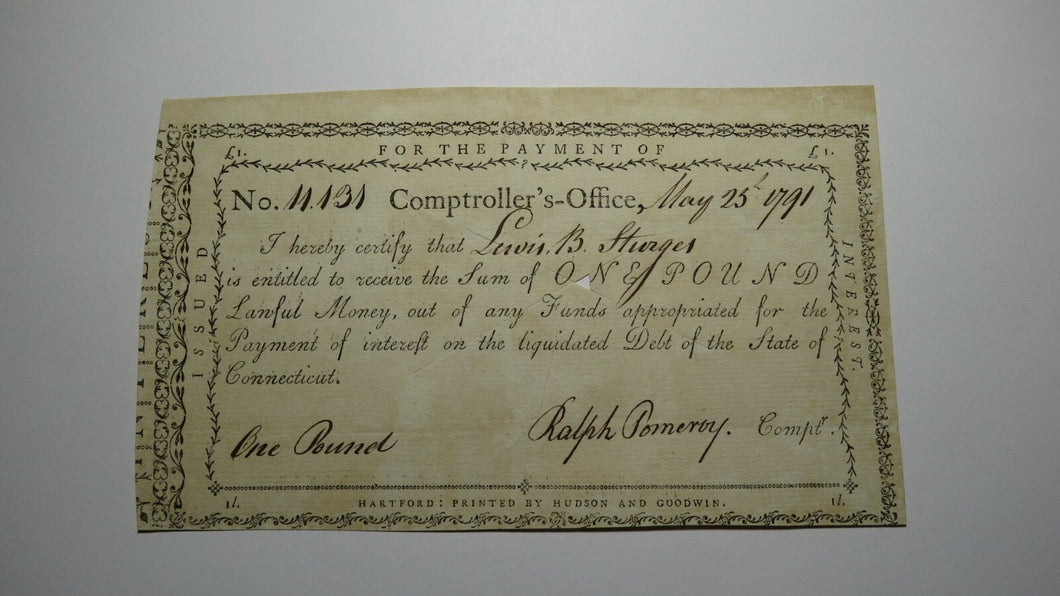 FOR THE PAYMENT OF
£1. £1.
No. 11.131 Comptroller's-Office, May 25th 1791
I hereby certify that Lewis. B. Sturges
is entitled to receive the Sum of ONE POUND
Lawful Money, out of any Funds appropriated for the
Payment of interest on the liquidated Debt of the State of
Connecticut.
One Pound Ralph Pomeroy. Comptr.
1l. HARTFORD: PRINTED BY HUDSON AND GOODWIN. 1l.
ISSUED
INTEREST.